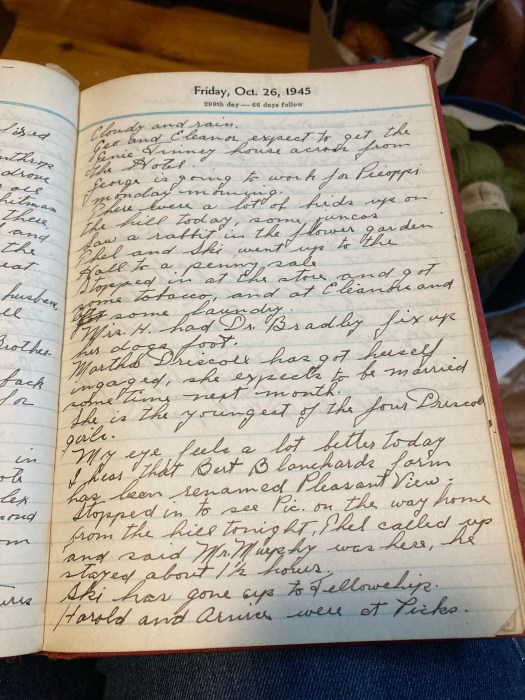 Friday, Oct. 26, 1945
299th day — 66 days follow
Cloudy and rain.
Geo and Eleanor expect to get the
Genie Finney house across from
the Hotel.
George is going to work for Picoppi
Monday morning.
There were a lot of birds up on
the hill today, some juncos
Saw a rabbit in the flower garden
Ethel and Ski went up to the
Hall to a penny sale
Stopped in at the store and got
some tobacco, and at Eleanor and
some laundry.
Mrs. H. had Dr. Bradley fix up
her dogs foot.
Martha Driscoll has got herself
ingaged, she expects to be married
some time next month.
She is the youngest of the four Driscoll
girls.
My eye feels a lot better today
I hear that Bert Blanchards farm
has been renamed Pleasant View.
Stopped in to see Pic. on the way home
from the hill tonight, Ethel called up
and said Mr. Murphy was here, he
stayed about 1½ hours.
Ski has gone up to Fellowship.
Harold and were at Picks.
fixed
drove
Whitman
there
and
the
eat
husband
Brother
back
for
in